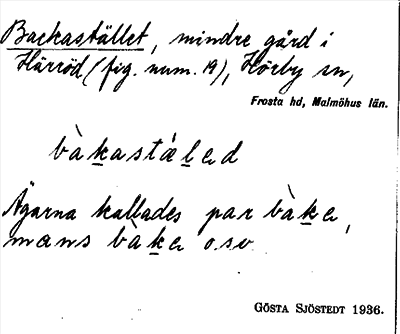 Backastället, mindre gård i
Härröd (fig. num. 19), Hörby sn,
Frosta hd, Malmöhus län.
bàkastæ̀led
Ägarna kallades par bàke,
mans bàke o.sv.
GÖSTA SJÖSTEDT 1936.